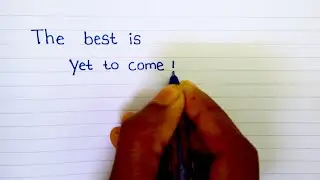 The best is
Yet to come !